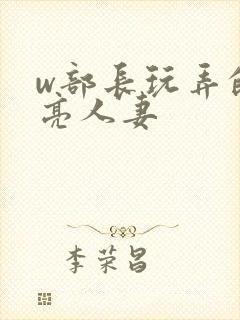 w部長玩弄的
亮人妻
李荣昌